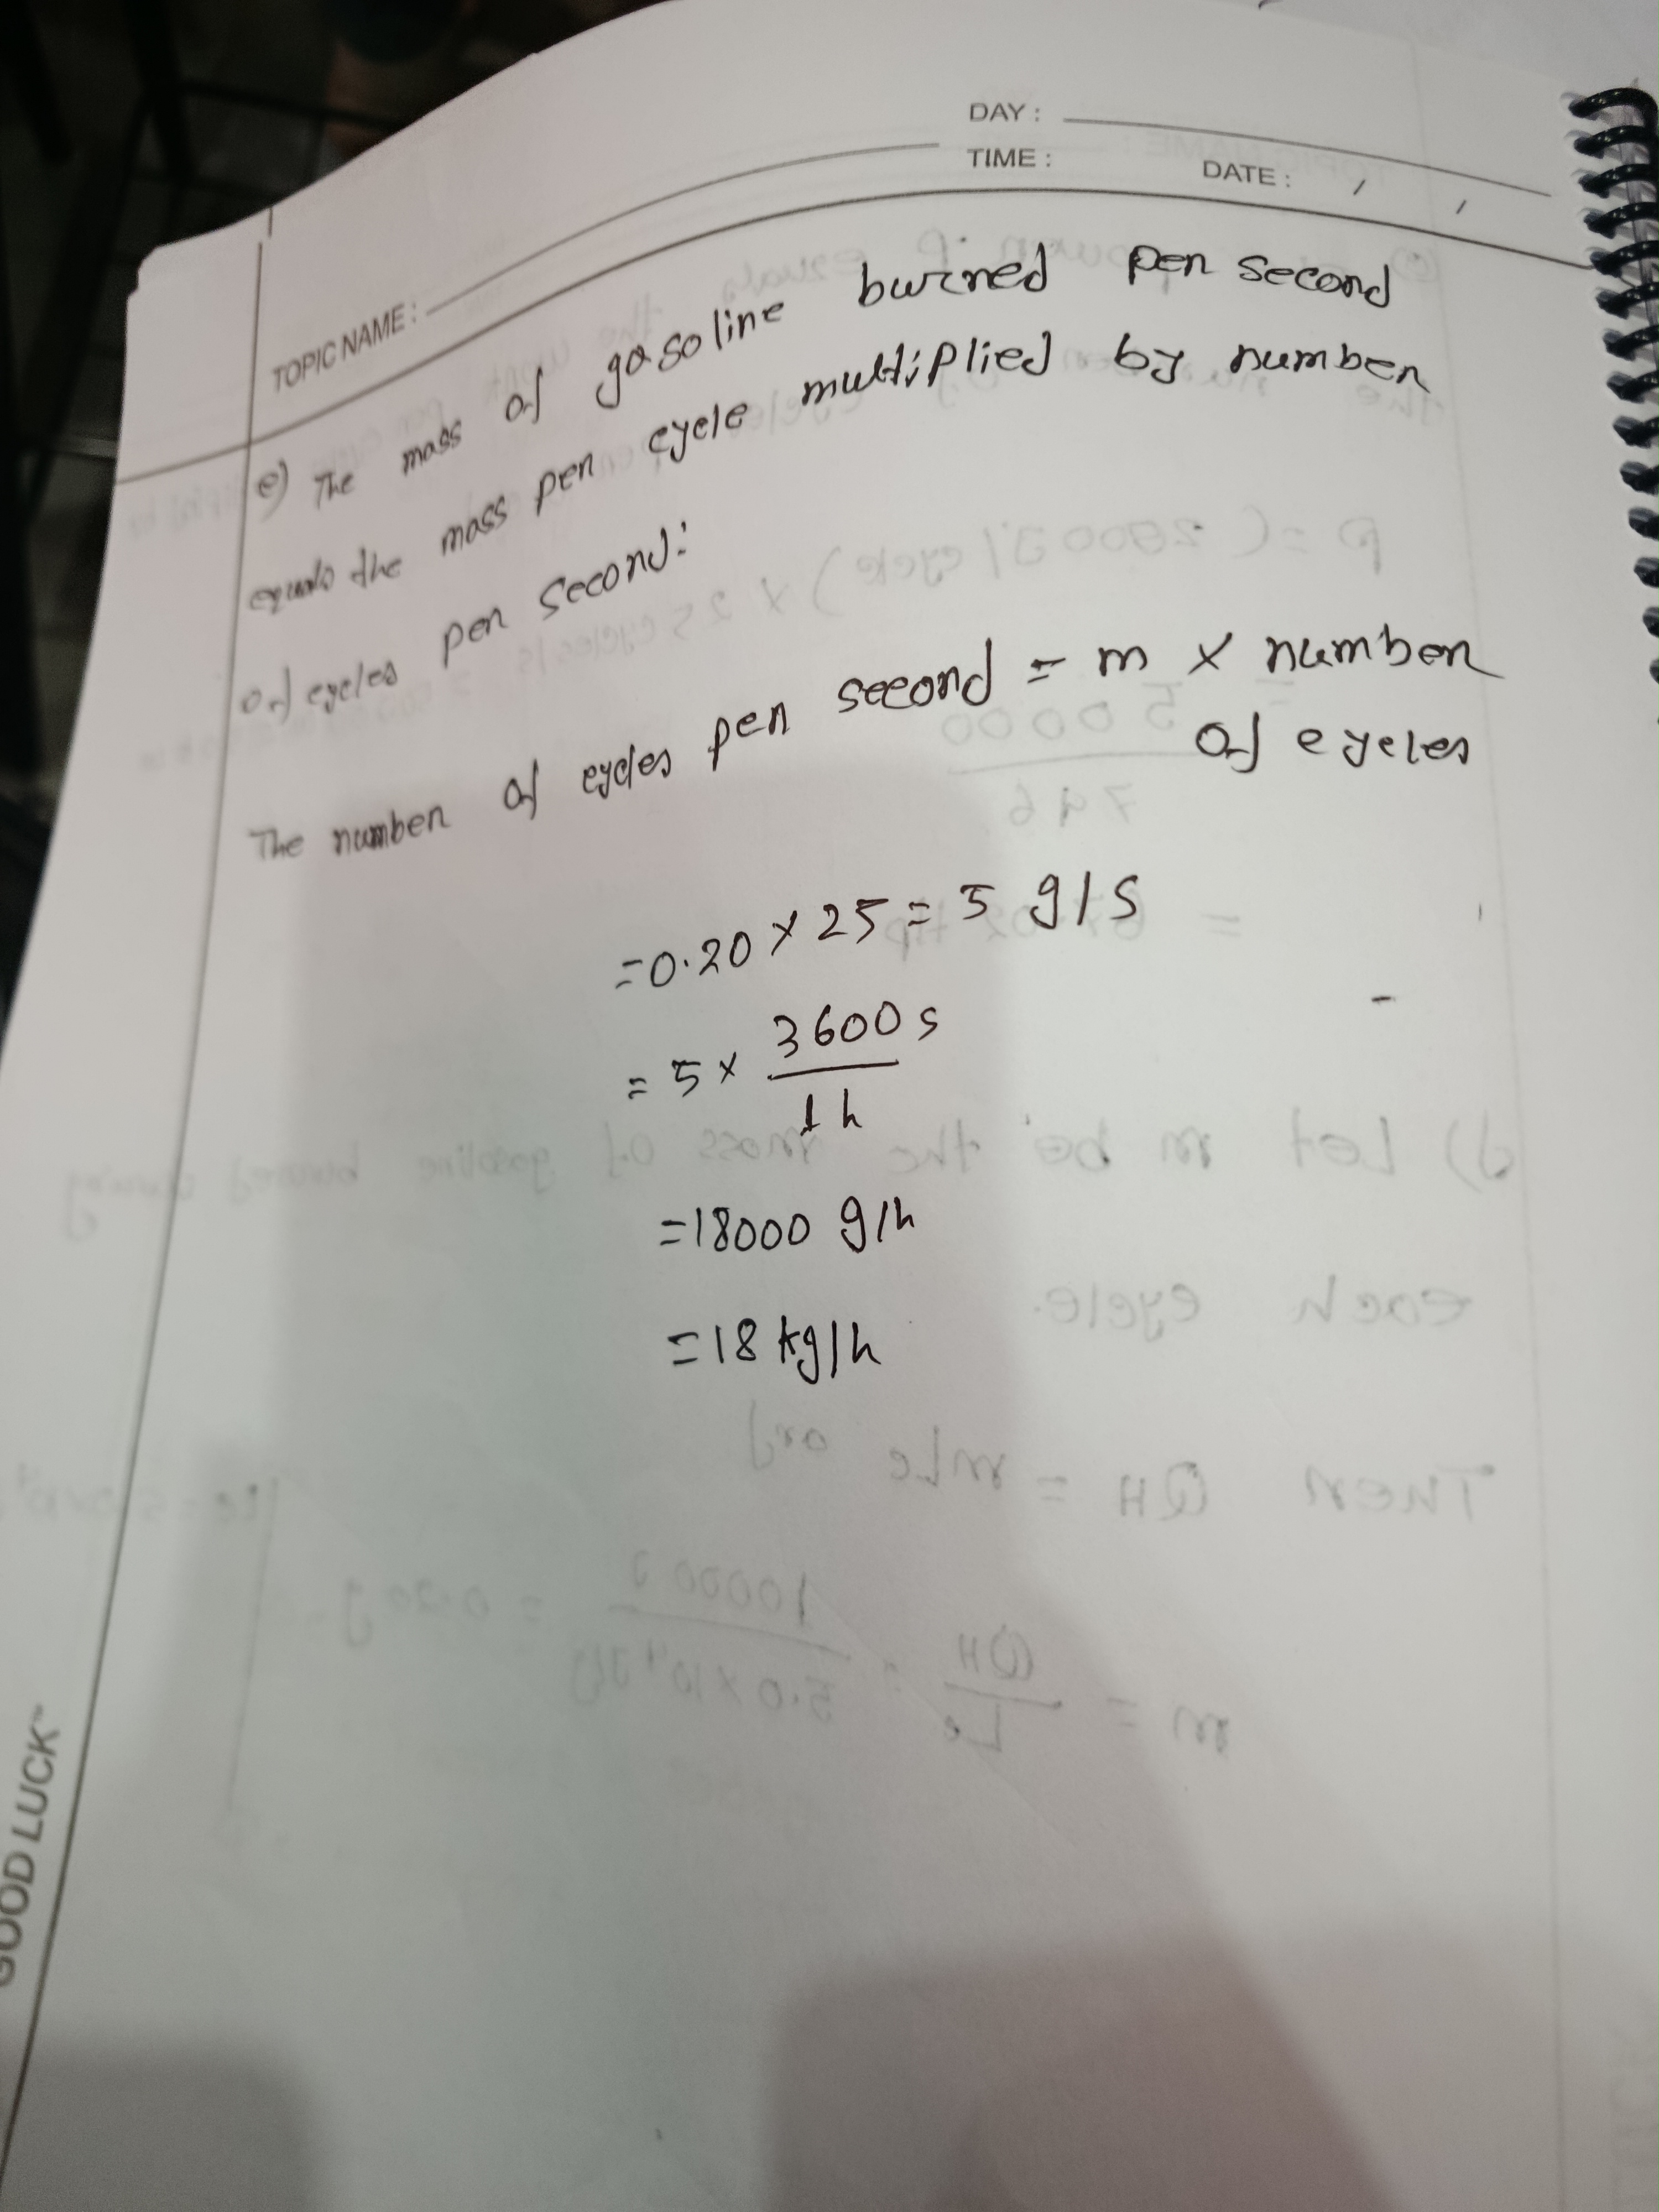 DAY :
TIME : DATE : / /
TOPIC NAME :
e) The mass of gasoline burned per second
equals the mass per cycle multiplied by number
of cycles per second:
The number of cycles per second = m × number
of cycles
= 0.20 × 25 = 5 g/s
= 5 × 3600 s
1 h
= 18000 g/h
= 18 kg/h
GOOD LUCK™